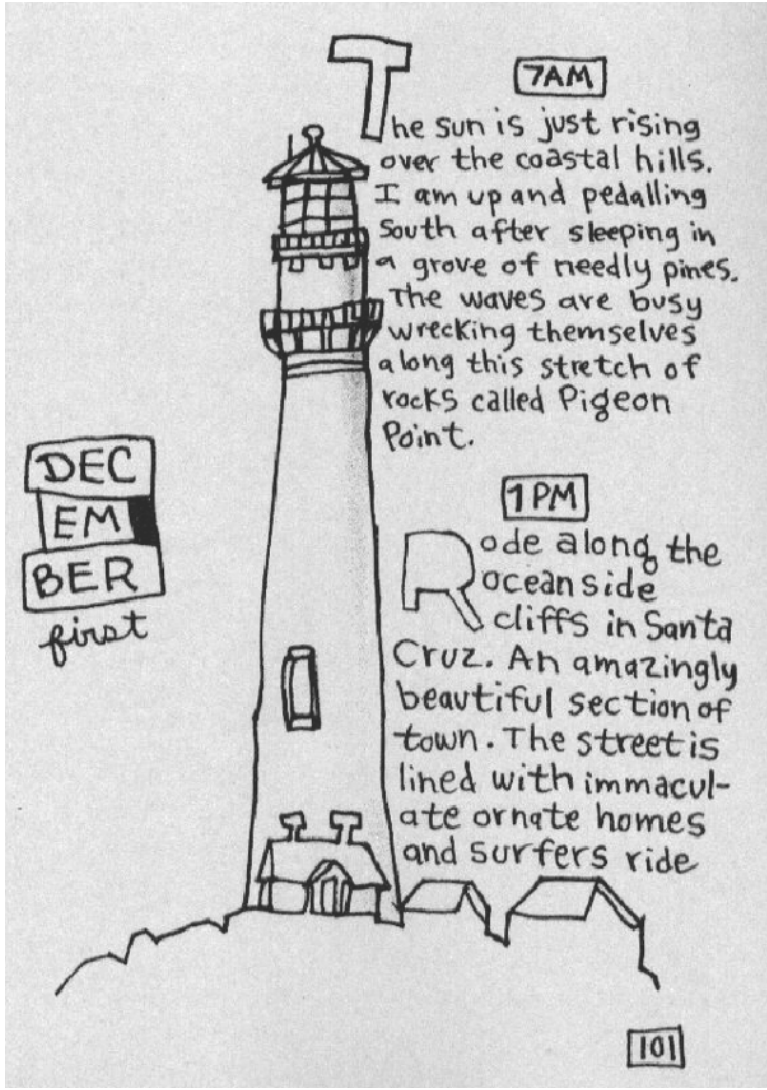 7AM
The sun is just rising
over the coastal hills.
I am up and pedalling
South after sleeping in
a grove of needly pines.
The waves are busy
wrecking themselves
along this stretch of
rocks called Pigeon
Point.
DEC
EM
BER
first
1 PM
Rode along the
oceanside
cliffs in Santa
Cruz. An amazingly
beautiful section of
town. The street is
lined with immacul-
ate ornate homes
and surfers ride
101